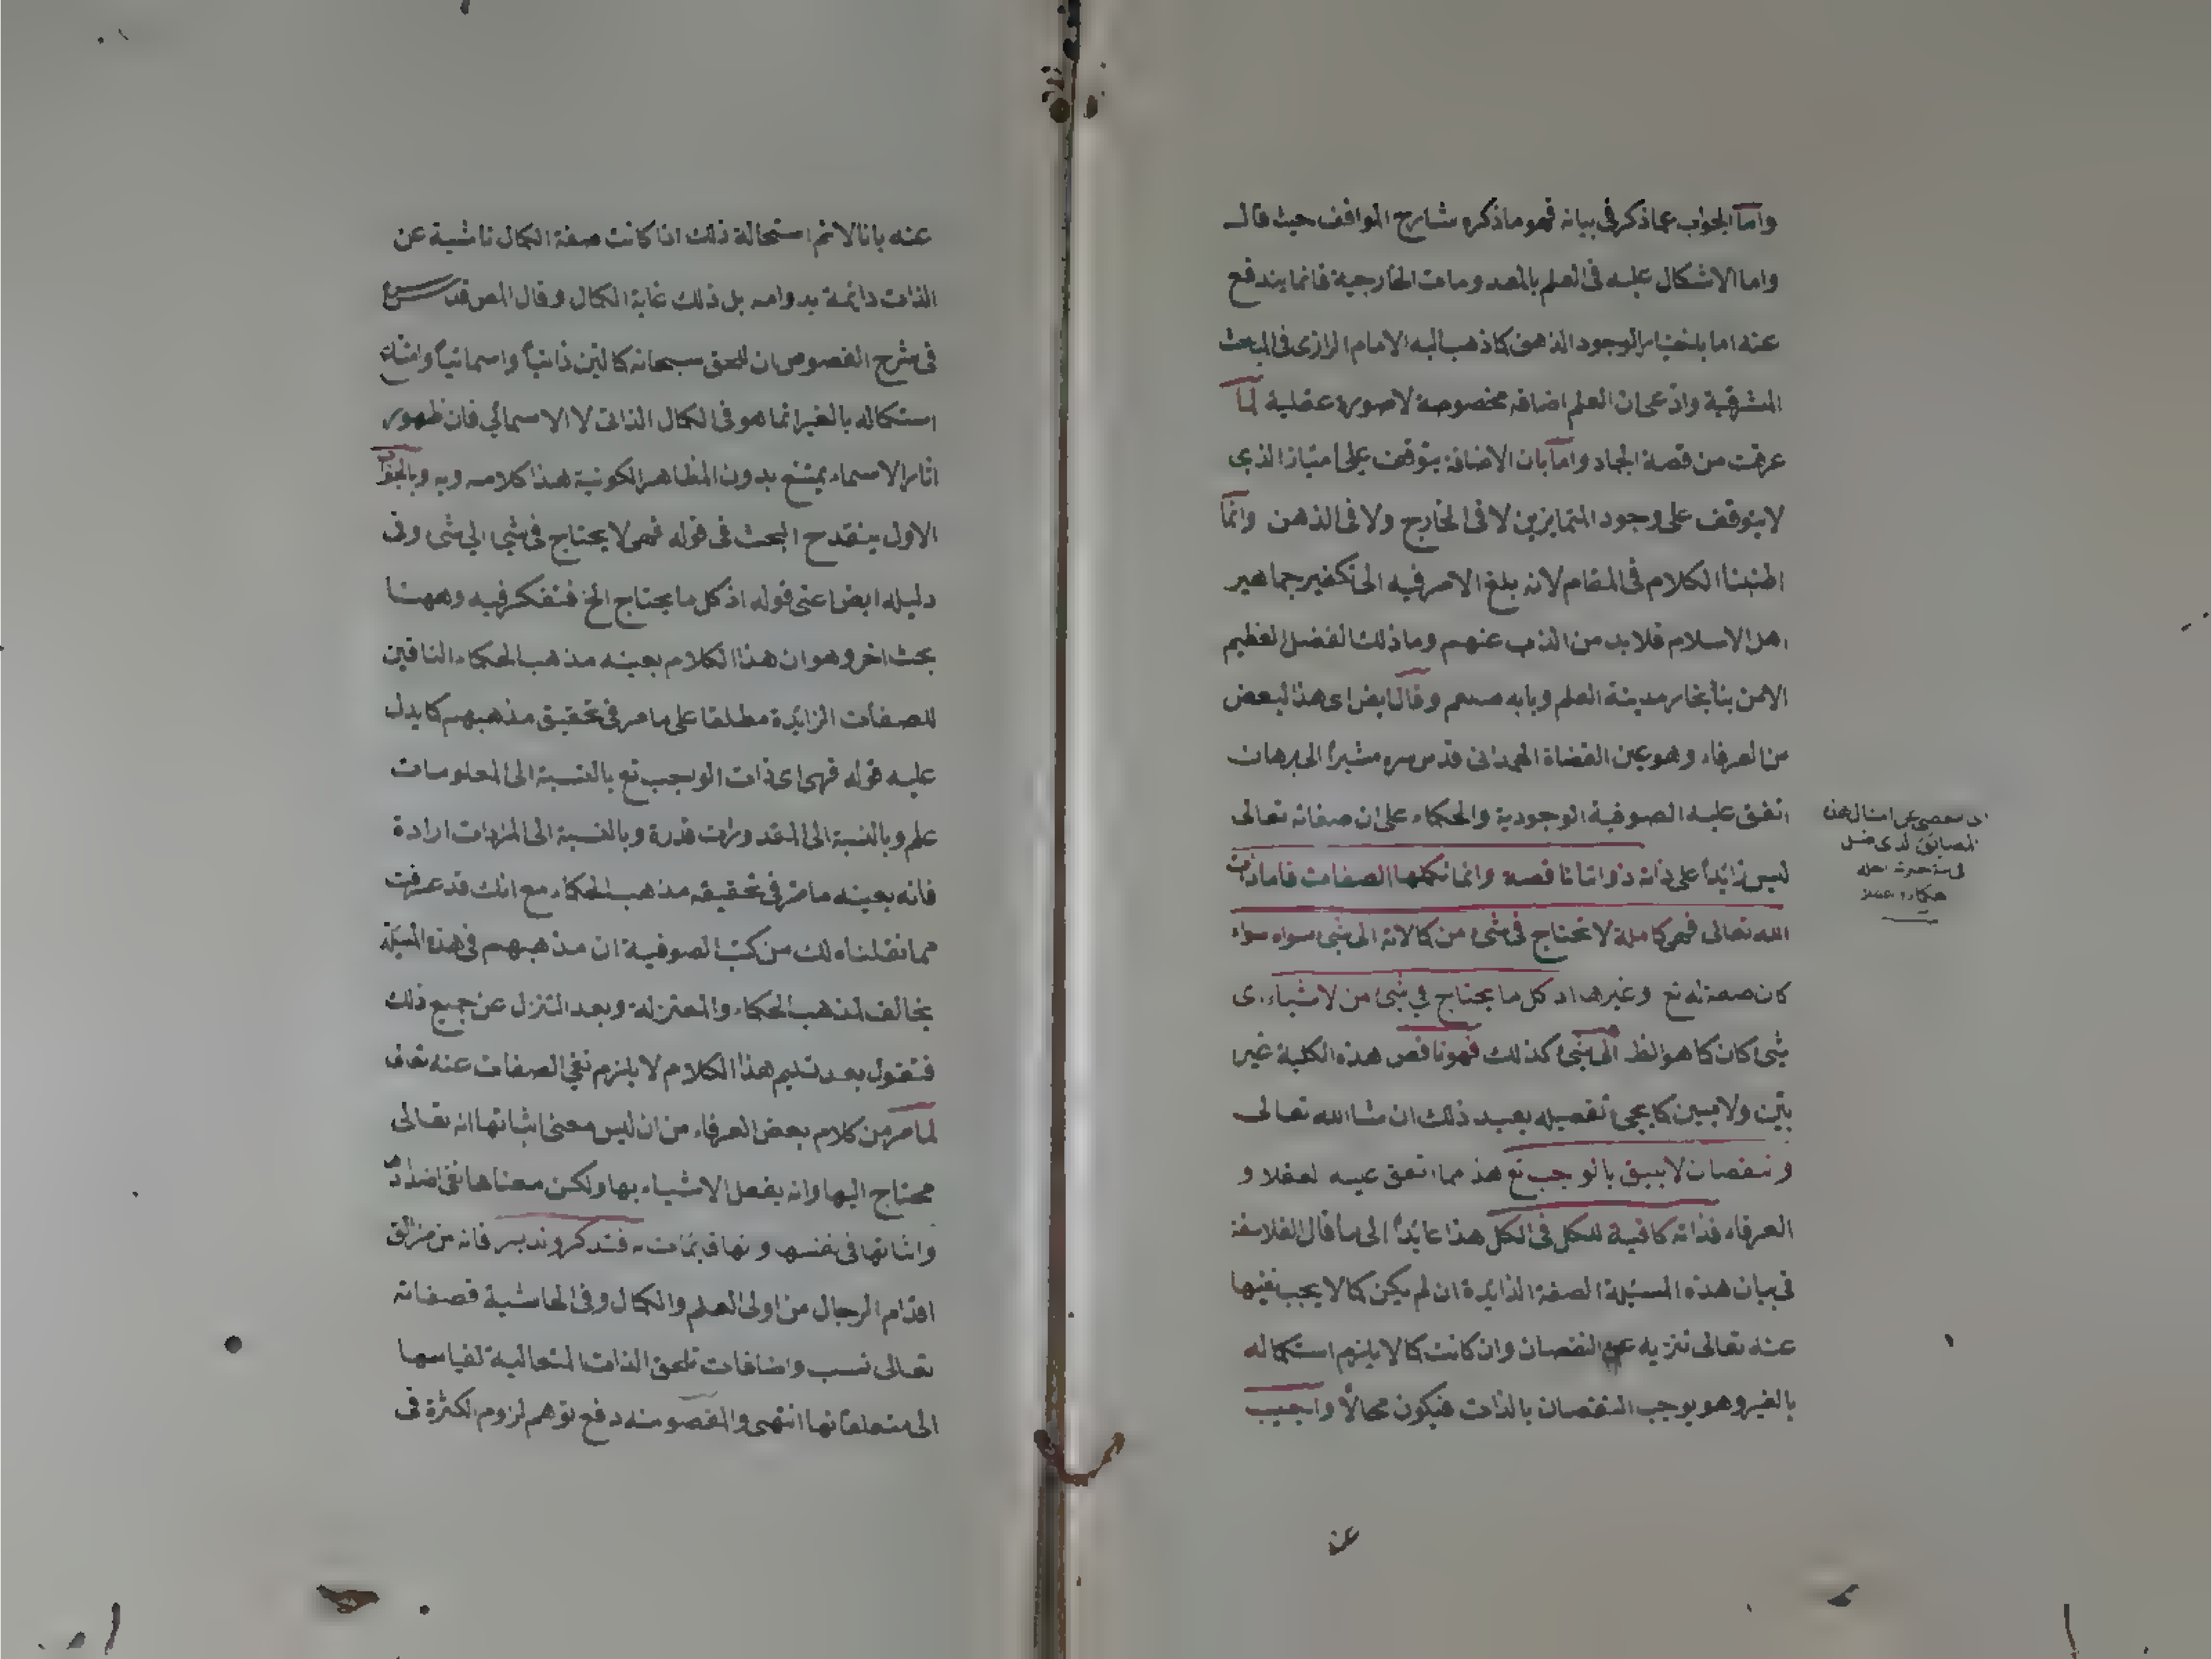 واما الجواب عما ذكر فى بيانه فهو ما ذكره شارح المواقف حيث قال
واما الاشكال عليه فى العلم بالمعدومات الخارجية فانما يندفع
عنه اما باختيار الوجود الذهنى كما ذهب اليه الامام الرازى فى المباحث
المشرقية وادعى ان العلم اضافة مخصوصة لا صورة عقلية لما
عرفت من قصة الجماد واما بان الاضافة يتوقف على امتياز الذى
لا يتوقف على وجود المتمايزين لا فى الخارج ولا فى الذهن وانما
اطنبنا الكلام فى المقام لانه بلغ الامر فيه الى تكفير جماهير
اهل الاسلام فلا بد من الذب عنهم وما ذلك الفضل العظيم
الا من بنا بخار مدينة العلم وبابه وقال ايضا اى هذا البعض
من العرفاء وهو عين القضاة الهمدانى قدس سره مشيرا الى برهان
اتفق عليه الصوفية الوجودية والحكماء على ان صفاته تعالى
ليس زايدا على ذاته ذواتنا ناقصة وانما تكملها الصفات فاما ذات
الله تعالى فهى كاملة لا تحتاج فى شئ من كمالاته الى شئ سواه سواء
كان صفة له تع وغيرها اذ كل ما يحتاج فى شئ من لاشياء اى
شئ كان كما هو الظ الى شئ كذلك فهو ناقص هذه الكلية غير
بين ولا مبين كما يجئ تفصيله بعيد ذلك ان شاا لله تعالى
و نقصان لا يليق بالوجب تع هذ مما اتفق عليه لعقلا و
العرفاء فذاته كافية للكل فى الكل هذا عايدا الى ما قال الفلاسفة
فى بيان هذه المسئلة الصفة الزايدة ان لم يكن كمالا يجب نفيها
عنه تعالى تنزيه عن النقصان وان كانت كمالا يلزم استكماله
بالغير وهو يوجب النقصان بالذات فيكون محالا واجيب
عن
امثال هذه
عنه بانا لا نم استحالة ذلك اذا كانت صفة الكمال ناشية عن
الذات دائمة بدوامه بل ذلك غاية الكمال وقال المص قدس سره
فى شرح الفصوص ان للحق سبحانه كمالين ذاتيا واسمائيا وامتناع
استكماله بالغير انما هو فى الكمال الذاتى لا الاسمائي فان ظهور
اثار الاسماء يمتنع بدون المظاهر الكونية هذا كلامه وبه وبالجواب
الاول ينقدح البحث فى قوله فهى لا يحتاج فى شئ الى شئ وفى
دليله ايضا اعنى قوله اذ كل ما يحتاج الخ فتفكر فيه وههنا
بحث اخر وهو ان هذا الكلام بعينه مذهب الحكماء النافين
للصفات الزايدة مطلقا على ما مر فى تحقيق مذهبهم كما يدل
عليه قوله فهى اى ذات الوجب تع بالنسبة الى المعلومات
علم وبالنسبة الى المقدورات قدرة وبالنسبة الى المرادات ارادة
فانه بعينه ما مر فى تحقيقه مذهب الحكماء مع انك قد عرفت
مما نقلناه لك من كتب الصوفية ان مذهبهم فى هذه المسئلة
يخالف لمذهب الحكماء والمعتزلة وبعد التنزل عن جميع ذلك
فنقول بعد تسليم هذا الكلام لا يلزم نفي الصفات عنه تعالى
لما مر من كلام بعض العرفاء من ان ليس معنى اثباتها انه تعالى
محتاج اليها وانه يفعل الاشياء بها ولكن معناها نفى اضدادها
واثباتها فى نفسها و فتذكر وتدبر فانه من مزالق
اقدام الرجال من اولى العلم والكمال وفى الحاشية فصفاته
تعالى نسب واضافات تلحق الذات المتعالية لقياسها
الى متعلقاتها انتهى والمقصو منه دفع توهم لزوم الكثرة فى